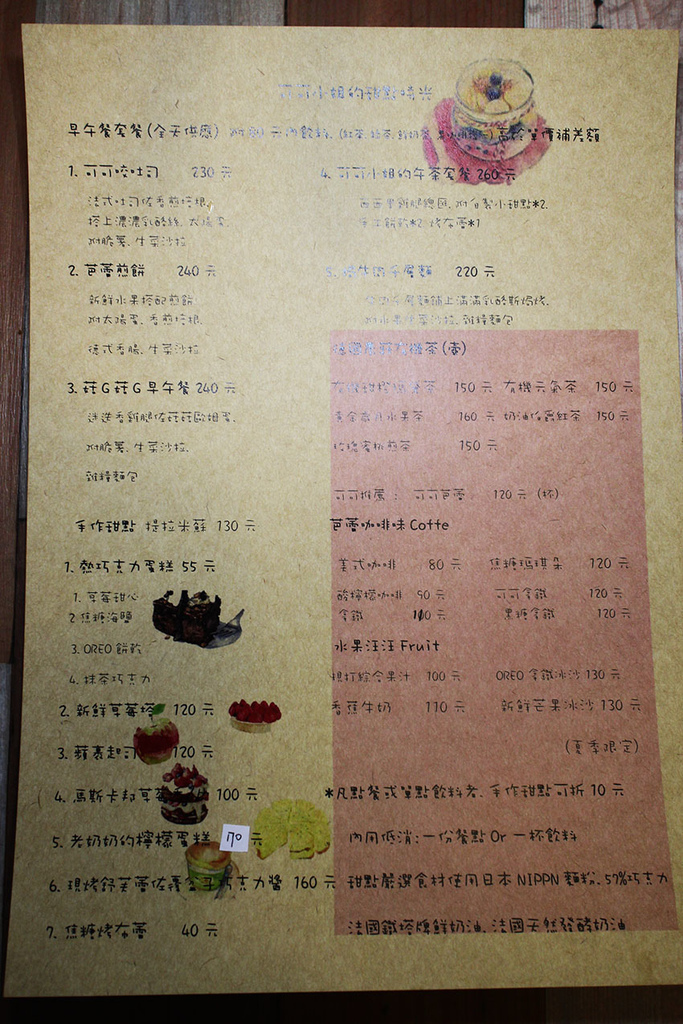 可可小姐的甜點時光
早午餐套餐(全天供應) 附 元內飲料. 高於單價補差額
1. 可可咬吐司 230 元
法式吐司佐香煎培根,
搭上濃濃乳酪絲. 太陽蛋.
附脆薯. 生菜沙拉
2. 芭蕾煎餅 240 元
新鮮水果搭配煎餅
附太陽蛋. 香煎培根.
德式香腸. 生菜沙拉
3. 菈G菈G早午餐 240 元
迷迭香雞腿佐菈菈歐姆蛋.
附脆薯. 生菜沙拉.
雜糧麵包
4. 可可小姐的午茶套餐 260 元
附自製小甜點*2.
手工餅乾*2. 烤布蕾*1
千層麵 220 元
千層麵鋪上滿滿乳酪斯焗烤.
附水果生菜沙拉. 雜糧麵包
茶(壺)
150 元 有機元氣茶 150 元
水果茶 160 元 奶油伯爵紅茶 150 元
煎茶 150 元
可可推薦: 可可芭蕾: 120 元 (杯)
芭蕾咖啡味 Cotte
美式咖啡 80 元 焦糖瑪琪朵 120 元
酸檸檬咖啡 90 元 可可拿鐵 120 元
拿鐵 110 元 果糖拿鐵 120 元
水果汪汪 Fruit
現打綜合果汁 100 元 OREO 拿鐵冰沙 130 元
香蕉牛奶 110 元 新鮮芒果冰沙 130 元
(夏季限定)
手作甜點 提拉米蘇 130 元
1. 熱巧克力蛋糕 55 元
1. 草莓甜心
2. 焦糖海鹽
3. OREO 餅乾
4. 抹茶巧克力
2. 新鮮草莓塔 120 元
3. 蘋裹起司 120 元
4. 馬斯卡邦草莓 100 元
5. 老奶奶的檸檬蛋糕 170 元
6. 現烤舒芙蕾佐覆盆子巧克力醬 160 元
7. 焦糖烤布蕾 40 元
*凡點餐或單點飲料者. 手作甜點可折 10 元
內用低消:一份餐點 Or 一杯飲料
甜點嚴選食材使用日本 NIPPN 麵粉. 57%巧克力
法國鐵塔牌鮮奶油. 法國天然發酵奶油